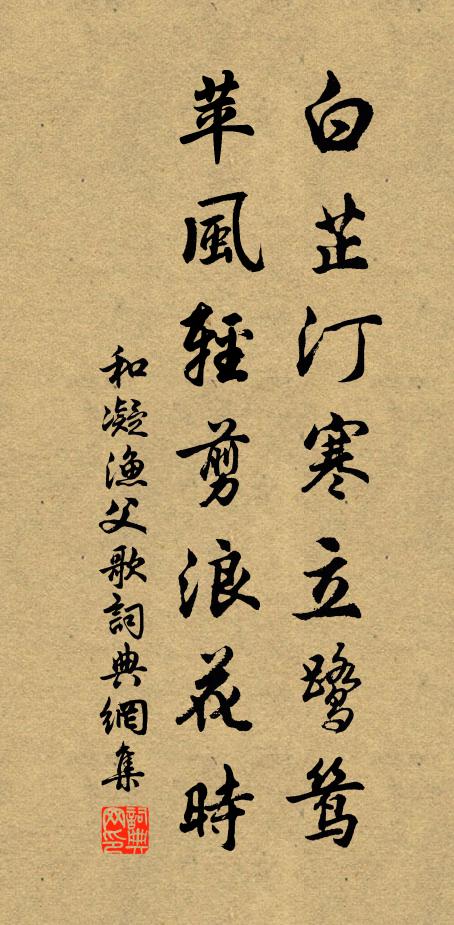 白芷汀寒立鷺鷥
苹風輕剪浪花時
和凝漁父歌詞典網集
詞典網印